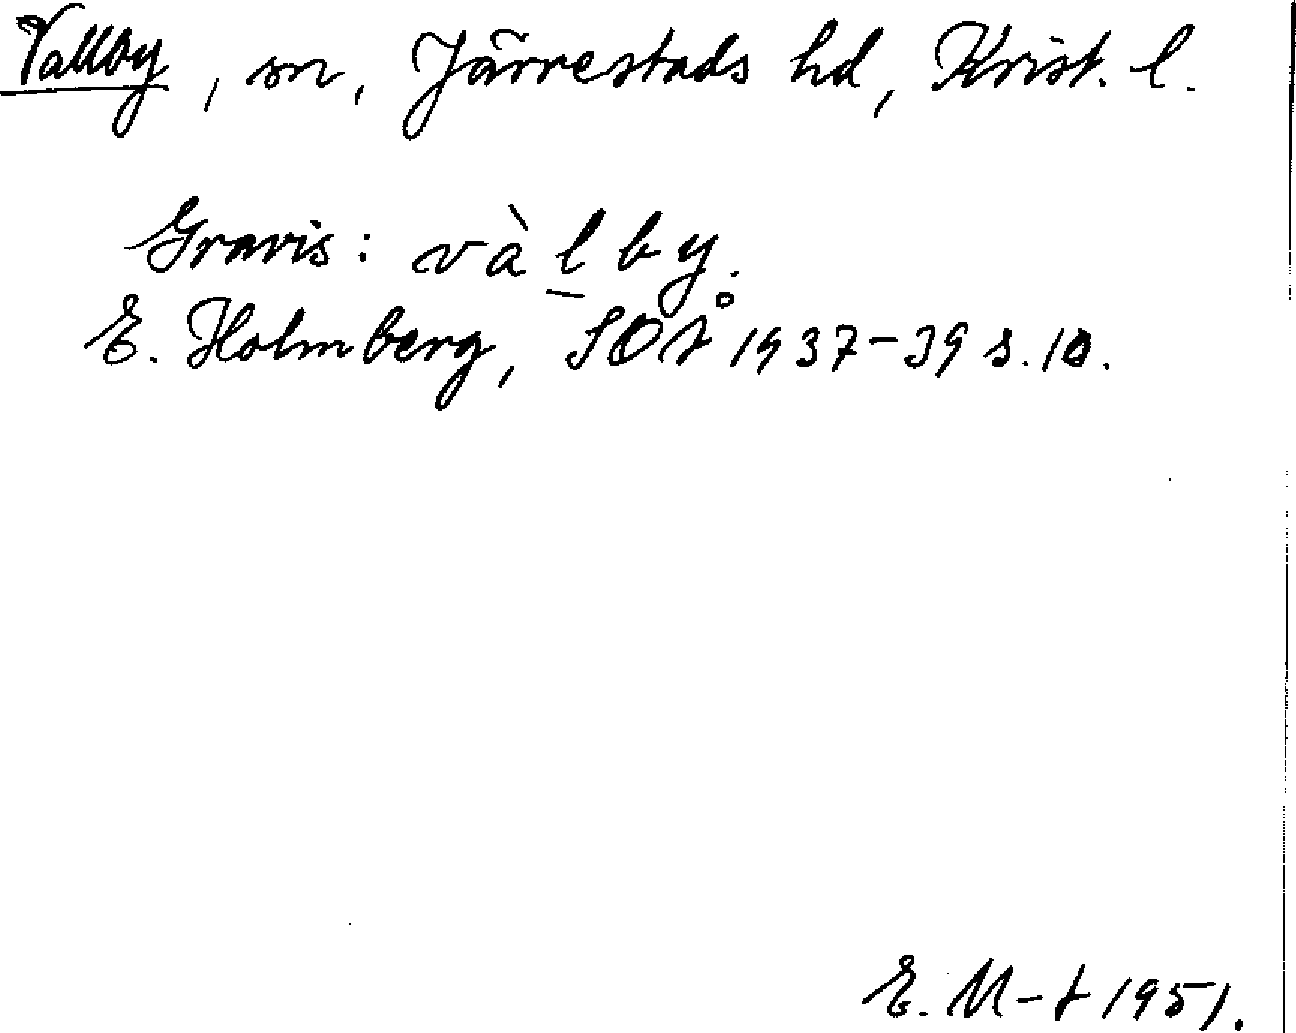 Vallby, sn, Järrestads hd, Krist. l.
Gravis: và l̲ b y.
E. Holmberg, SOÅ 1937-39 s. 10.
E. M-t 1951.